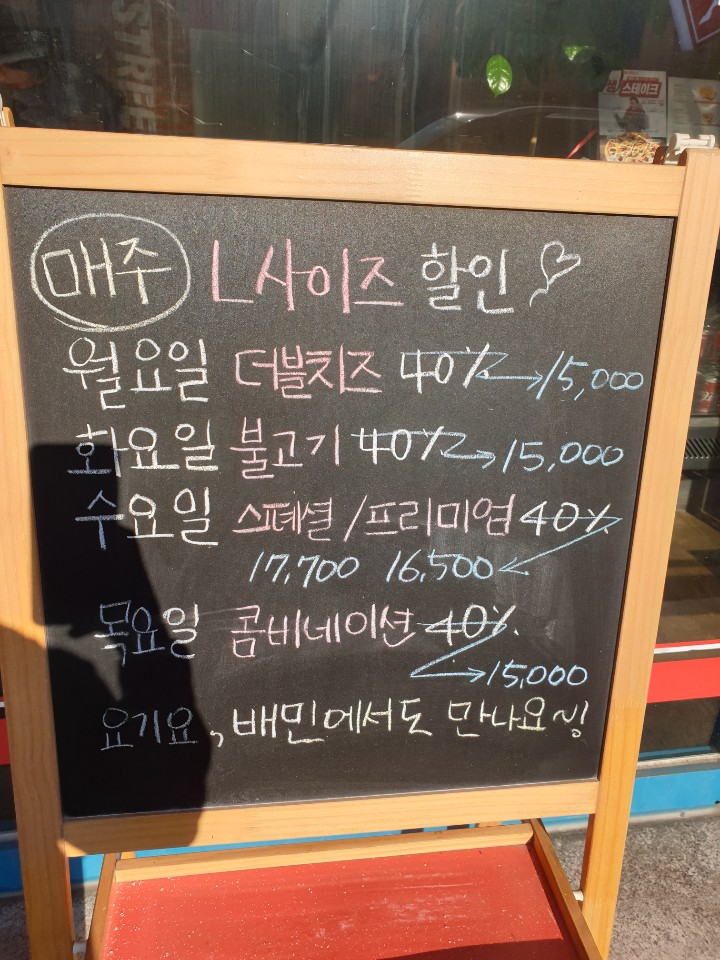 STREE
생
스테이크
매주 L사이즈 할인
월요일 더블치즈 40% → 15,000
화요일 불고기 40% → 15,000
수요일 스페셜/프리미엄 40%
17,700 16,500
목요일 콤비네이션 40%
→ 15,000
요기요, 배민에서도 만나요~!